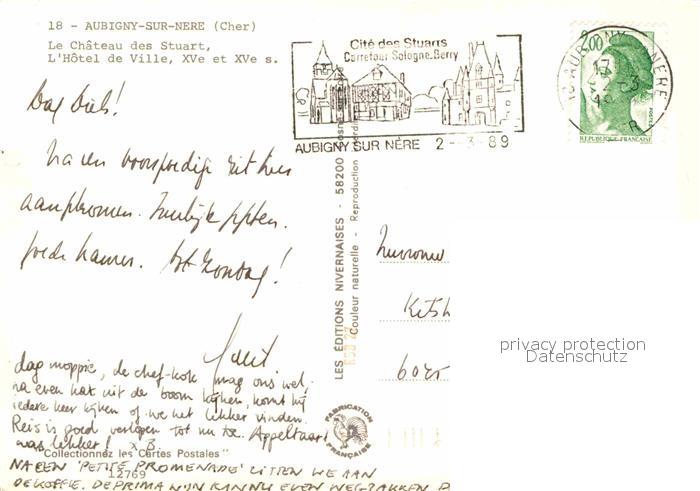 18 - AUBIGNY-SUR-NERE (Cher)
Le Château des Stuart,
L'Hôtel de Ville, XVe et XVe s.
Cité des Stuarts
Carrefour Sologne-Berry
AUBIGNY SUR NÈRE 2 - 3 - 89
AUBIGNY NERE
2,00
REPUBLIQUE FRANCAISE
Na een voorspoedige rit hier
aangekomen. Heerlijk
goede kamer. tot zondag!
dag moppie, de chef-kok mag ons wel,
na even kat uit de boom kijken, komt hij
iedere keer kijken of we het lekker vinden.
Reis is goed verlopen tot nu toe. Appeltaart
was lekker! x B
"Collectionnez les Cartes Postales"
12769
NA EEN 'PETITE PROMENADE' ZITTEN WE AAN
DE KOFFIE. DE PRIMA WIJN KAN NU EVEN WEGZAKKEN
LES ÉDITIONS NIVERNAISES - 58200
Couleur naturelle - Reproduction
FABRICATION
FRANÇAISE
privacy protection
Datenschutz